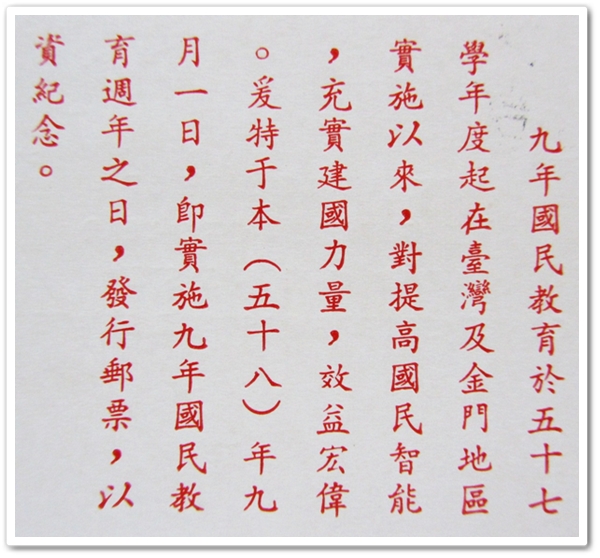 九年國民教育於五十七
學年度起在臺灣及金門地區
實施以來，對提高國民智能
，充實建國力量，效益宏偉
。爰特于本（五十八）年九
月一日，卽實施九年國民教
育週年之日，發行郵票，以
資紀念。